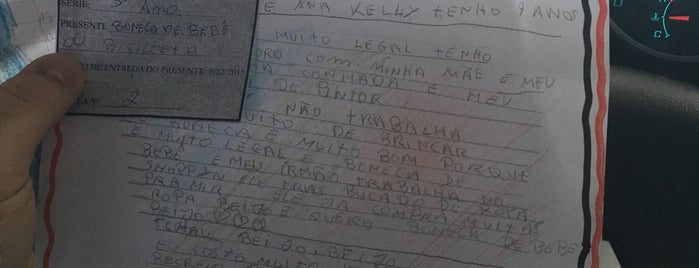 SÉRIE: 3º ANO
PRESENTE: BONECA DE BEBÊ
OU BISICLETA
DE ENTREGA DO PRESENTE 8/12/2015
2
E ANA KELLY TENHO 9 ANOS
MUITO LEGAL TENHO
ORO COM MINHA MÃE E MEU
CONHADA E MEU
DE PINTOR
NÃO TRABALHA
DE BRINCAR
BONECA E MUITO BOM PORQUE
E MUITO LEGAL E BONECA DE
BEBÊ E MEU IRMÃO TRABALHA NO
SHOPPYN ELE TRAS BUCADO DE ROPA
PRA MIR ELE JA COMPRA MUITAS
ROPA BEIJO E QUERO BONECA DE BEBÊ
BEIJO
TCHAU BEIJO, BEIJO
EU COSTO MUITO
RECREIO